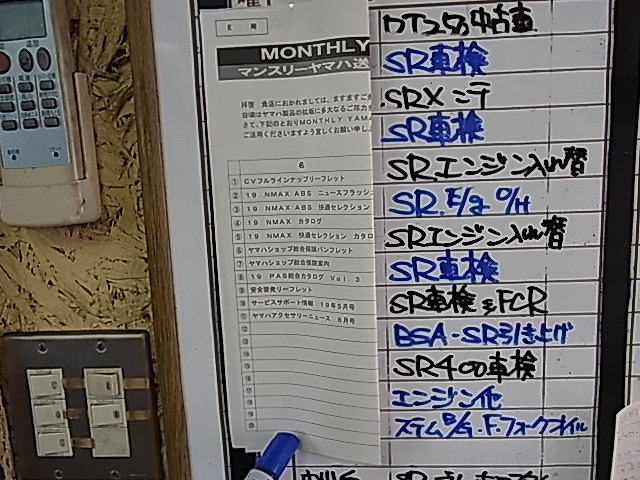 MONTHLY
マンスリーヤマハ送
拝啓 貴店におかれましては、ますますご
日頃はヤマハ製品の拡販に多大なるご尽力
さて、下記のとおりMONTHLY YAMA
ご活用くださいますよう宜しくお願い申し
名
① CVフルラインナップリーフレット
② 19 NMAX ABS ニュースフラッシ
③ 19 NMAX ABS 快適セレクション
④ 19 NMAX カタログ
⑤ 19 NMAX 快適セレクション カタロ
⑥ ヤマハショップ総合保険パンフレット
⑦ ヤマハショップ総合保険案内
⑧ 19 PAS総合カタログ Vol.3
⑨ 安全啓発リーフレット
⑩ サービスサポート情報 19年5月号
⑪ ヤマハアクセサリーニュース 6月号
⑫
⑬
⑭
⑮
⑯
⑰
⑱
⑲
⑳
DT250中古車
SR車検
SRX ニテ
SR車検
SRエンジン入れ替
SR.E/g O/H
SRエンジン入れ替
SR車検
SR車検 FCR
BSA-SR引き上げ
SR400車検
エンジン他
ステムB/G.F.フォークオイル